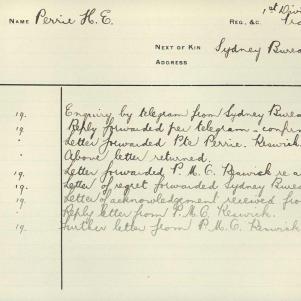 NAME Perrie H. E. REG., &C. 1st Divi
NEXT OF KIN Sydney Burea
ADDRESS
19. Enquiry by telegram from Sydney Burea
19. Reply forwarded per telegram - confir
Letter forwarded Pte Perrie. Keswick.
Above letter returned.
19. Letter forwarded P. M. C. Keswick re a
19. Letter of regret forwarded Sydney Burea
19. Letter of acknowledgement received from
Reply letter from P.M.C. Keswick.
19. Further letter from P.M.C. Keswick